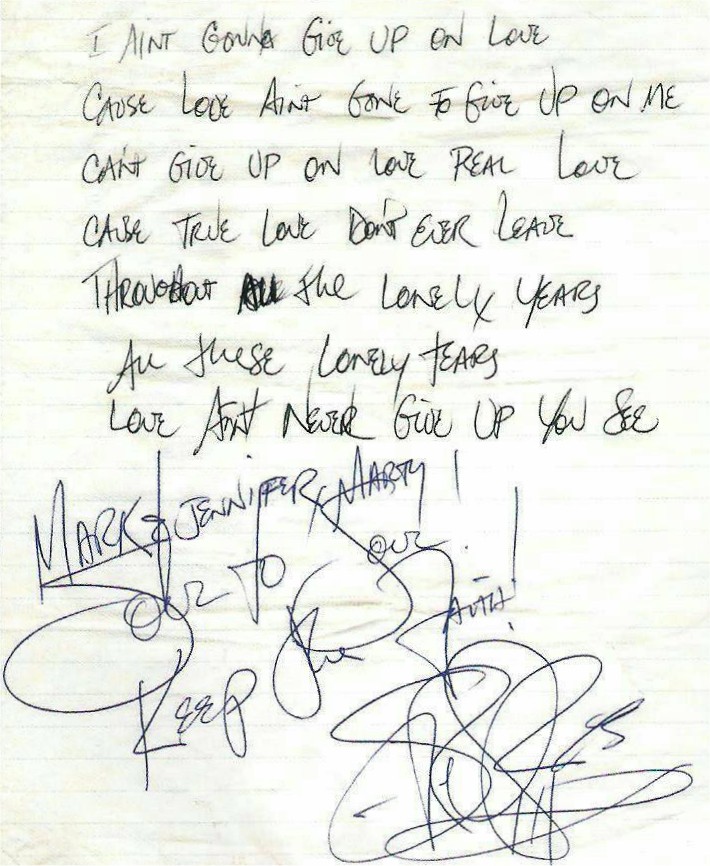 I AINT GONNA GIVE UP ON LOVE
CAUSE LOVE AIN'T GONE TO GIVE UP ON ME
CAN'T GIVE UP ON LOVE REAL LOVE
CAUSE TRUE LOVE DON'T EVER LEAVE
THROUGHOUT ALL the LONELY YEARS
ALL these LONELY TEARS
LOVE AIN'T NEVER GIVE UP YOU SEE
MARK & JENNIFER & MARTY!
SOUL TO SOUL!
KEEP the FAITH!